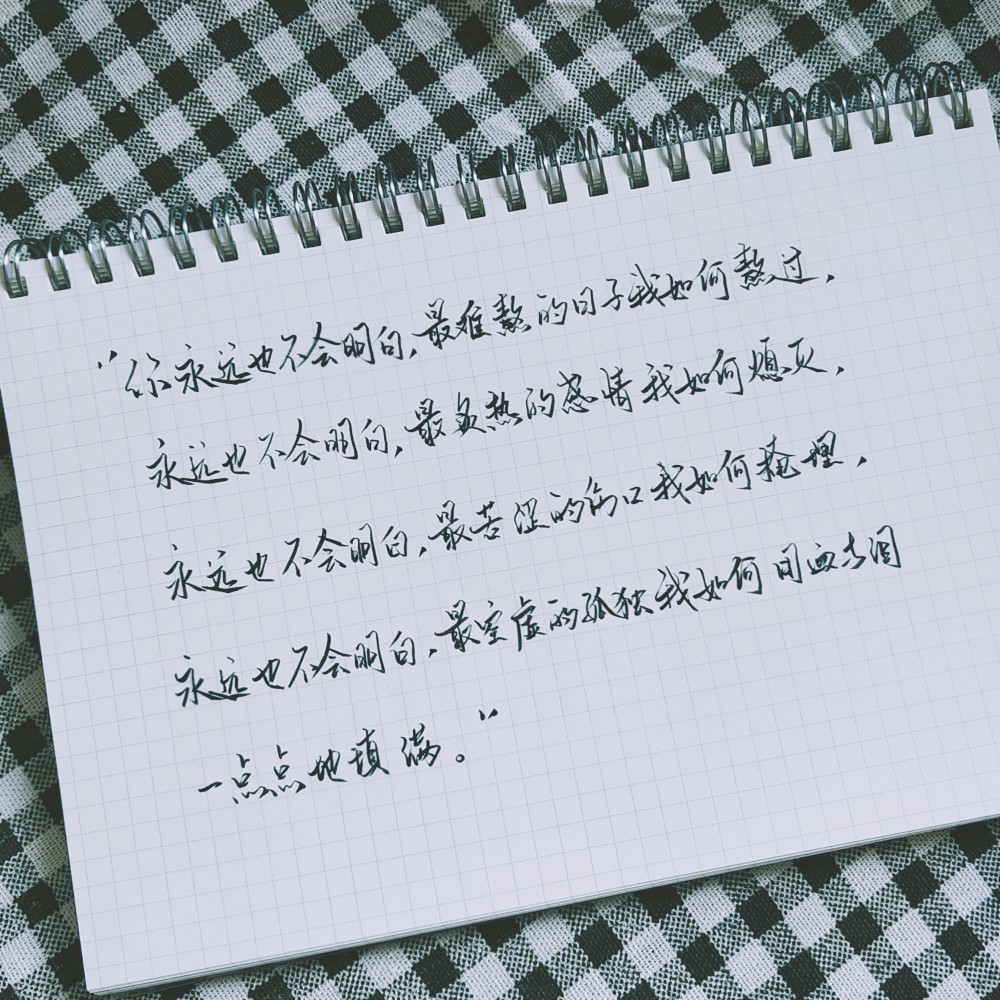 “你永远也不会明白，最难熬的日子我如何熬过，
永远也不会明白，最炙热的感情我如何熄灭，
永远也不会明白，最苦涩的伤口我如何掩埋，
永远也不会明白，最空虚的孤独我如何用血与泪
一点点地填满。”